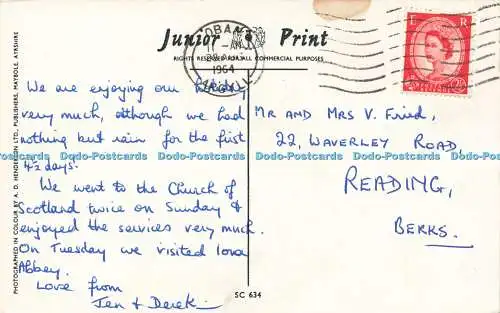 Junior Print
RIGHTS RESERVED FOR ALL COMMERCIAL PURPOSES
OBAN
1964
ARGYLL
E R
PHOTOGRAPHED IN COLOUR BY A. D. HENDERSON LTD., PUBLISHERS, MAYBOLE, AYRSHIRE
We are enjoying our
very much, although we had
nothing but rain for the first
4½ days.
We went to the Church of
Scotland twice on Sunday &
enjoyed the services very much.
On Tuesday we visited Iona
Abbey.
Love from
Jen & Derek
MR AND MRS V.
22, WAVERLEY ROAD
READING,
BERKS.
SC 634
Dodo-Postcards Dodo-Postcards Dodo-Postcards Dodo-Postcards